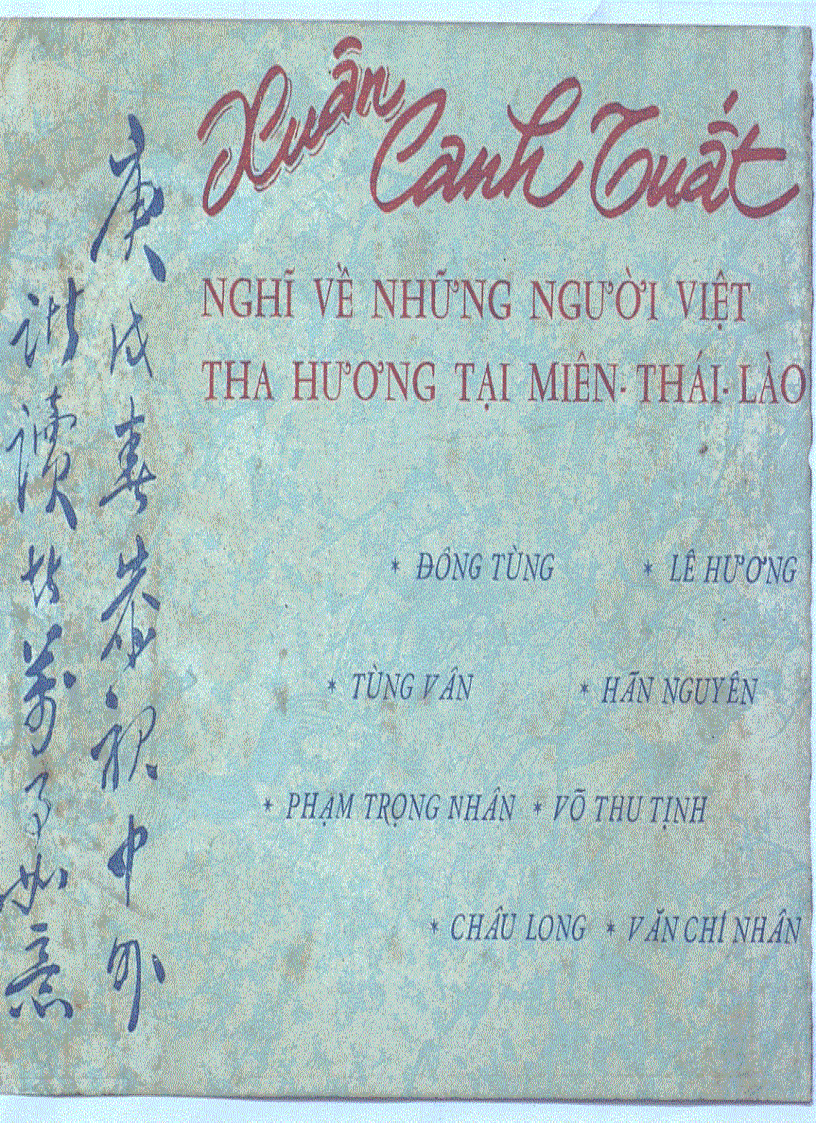 Xuân Canh Tuất
NGHĨ VỀ NHỮNG NGƯỜI VIỆT
THA HƯƠNG TẠI MIÊN-THÁI-LÀO
* ĐÔNG TÙNG * LÊ HƯƠNG
* TÙNG VÂN * HÃN NGUYÊN
* PHẠM TRỌNG NHÂN * VÕ THU TỊNH
* CHÂU LONG * VĂN CHÍ NHÂN
庚戌春恭祝中外
諸讀者萬事如意